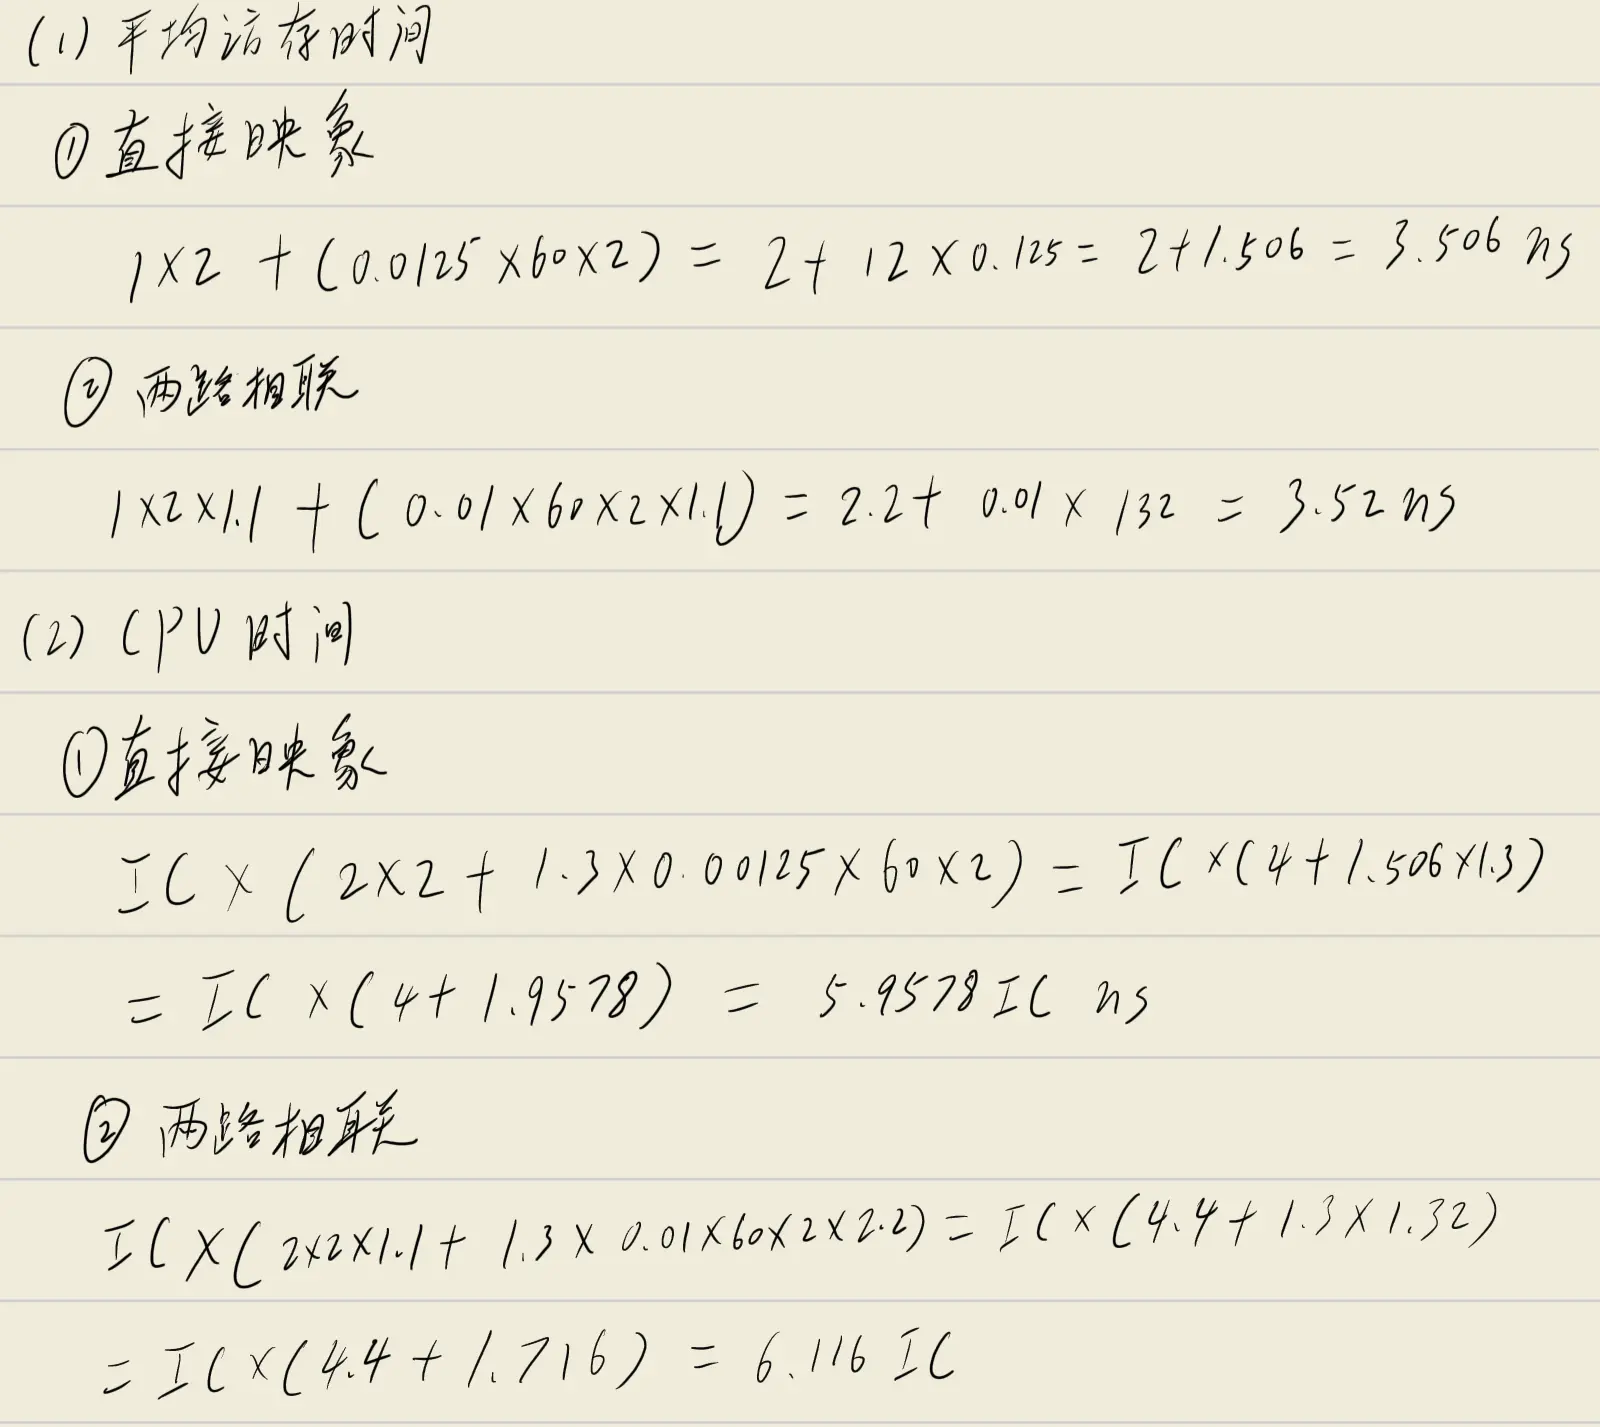 (1) 平均访存时间
① 直接映象
1×2 + (0.0125×60×2) = 2+ 12×0.125 = 2+1.506 = 3.506 ns
② 两路相联
1×2×1.1 + ( 0.01×60×2×1.1) = 2.2+ 0.01 × 132 = 3.52 ns
(2) CPU 时间
①直接映象
IC × ( 2×2 + 1.3×0.00125×60×2) = IC ×(4+1.506×1.3)
= IC ×(4+ 1.9578) = 5.9578 IC ns
② 两路相联
IC×( 2×2×1.1+ 1.3× 0.01×60×2×2.2) = IC×(4.4+ 1.3×1.32)
= IC×(4.4 + 1.716) = 6.116 IC